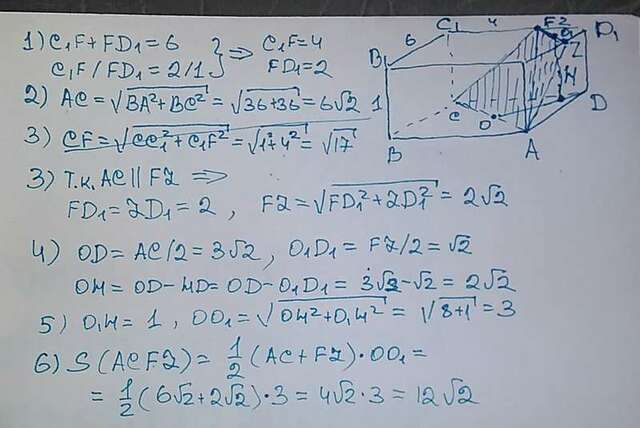 1) C₁F + FD₁ = 6 } ⇒ C₁F = 4
C₁F / FD₁ = 2/1 FD₁ = 2
2) AC = √(BA² + BC²) = √(36+36) = 6√2
3) CF = √(CC₁² + C₁F²) = √(1² + 4²) = √17
3) Т.к. AC || FZ ⇒
FD₁ = ZD₁ = 2 , FZ = √(FD₁² + ZD₁²) = 2√2
4) OD = AC/2 = 3√2 , O₁D₁ = FZ/2 = √2
OH = OD − HD = OD − O₁D₁ = 3√2 − √2 = 2√2
5) O₁H = 1 , OO₁ = √(OH² + O₁H²) = √(8+1) = 3
6) S(ACFZ) = 1/2 (AC + FZ) · OO₁ =
= 1/2 (6√2 + 2√2) · 3 = 4√2 · 3 = 12√2
C₁ 4 F 2 D₁
B₁ 6 O₁ Z
1 H
C O D
B A